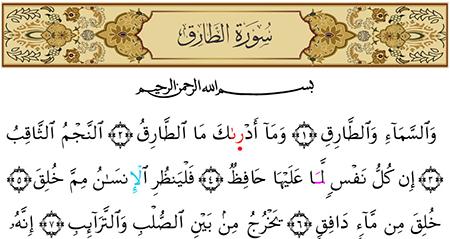 سُورَةُ الطَّارِقِ
بسم الله الرحمن الرحيم
وَالسَّمَآءِ وَالطَّارِقِ ﴿١﴾ وَمَآ أَدْرِىٰكَ مَا الطَّارِقُ ﴿٢﴾ النَّجْمُ الثَّاقِبُ
﴿٣﴾ إِن كُلُّ نَفْسٍ لَّمَا عَلَيْهَا حَافِظٌ ﴿٤﴾ فَلْيَنظُرِ الْإِنسَٰنُ مِمَّ خُلِقَ ﴿٥﴾
خُلِقَ مِن مَّآءٍ دَافِقٍ ﴿٦﴾ يَخْرُجُ مِنۢ بَيْنِ الصُّلْبِ وَالتَّرَآئِبِ ﴿٧﴾ إِنَّهُۥ